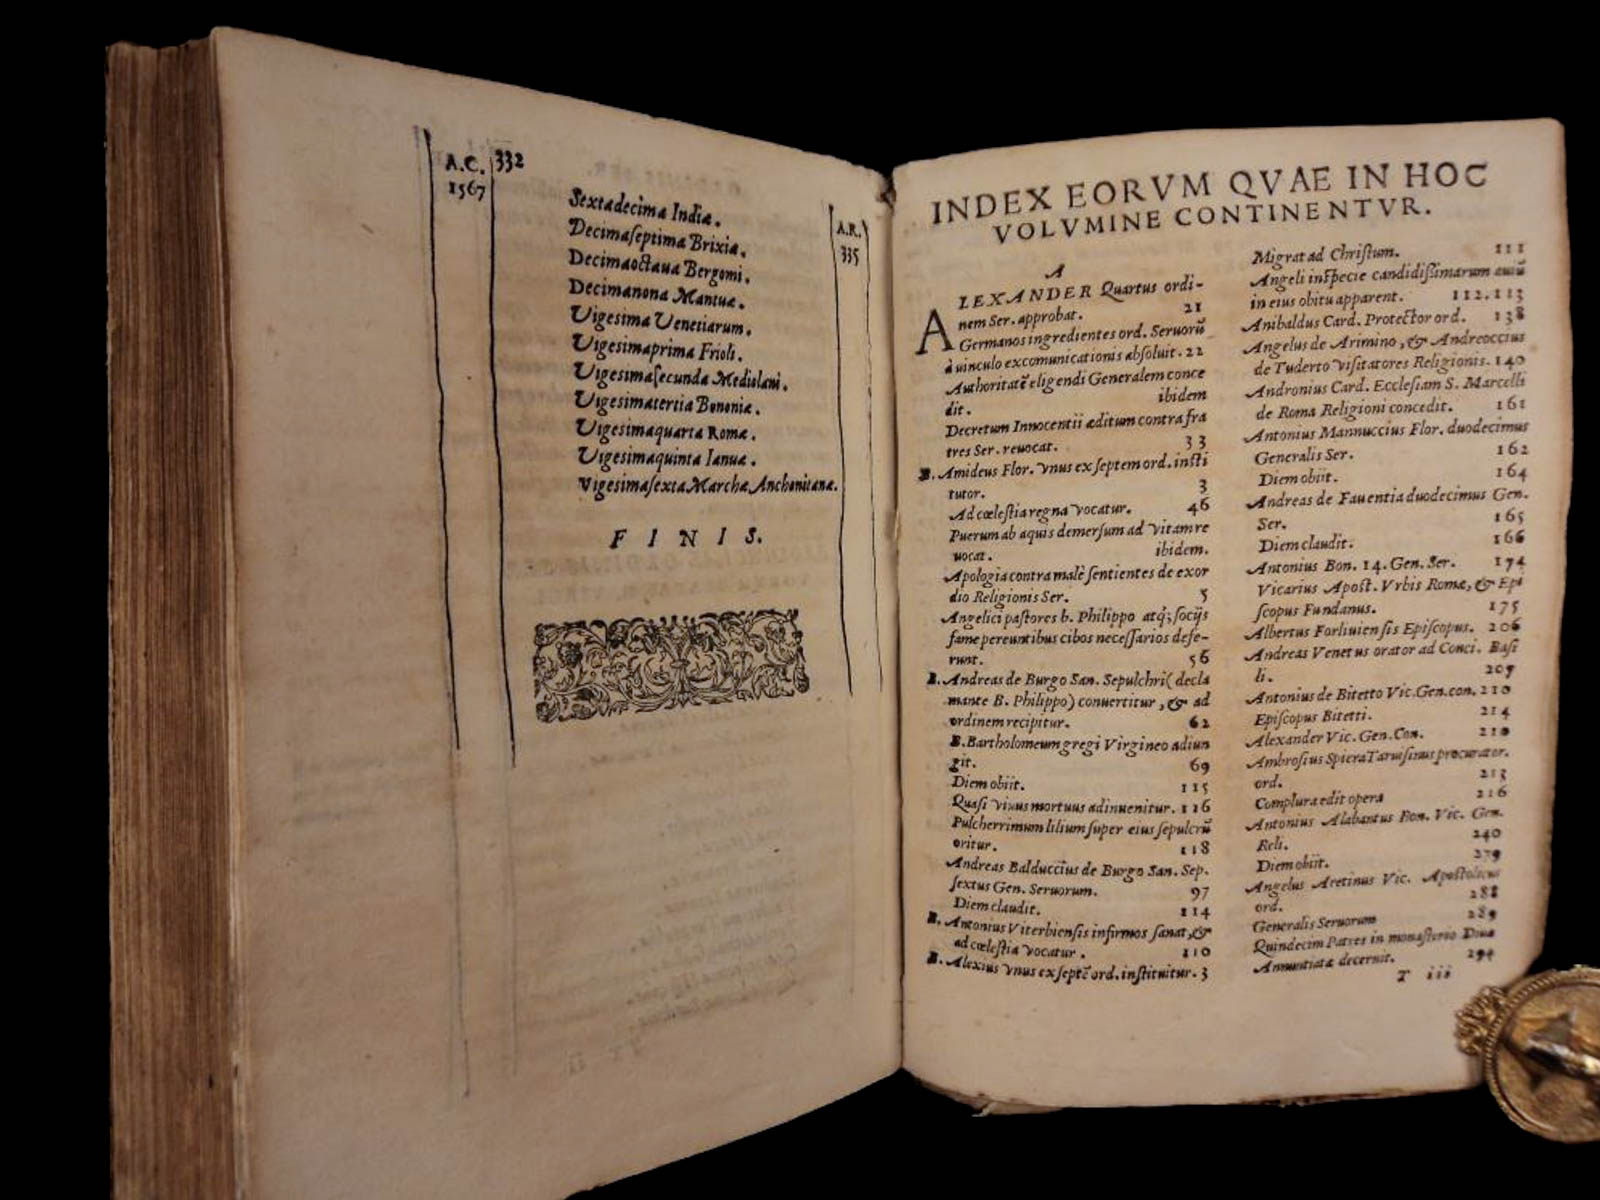 A.C. 332
1567
Sextadecima Indiæ.
Decimaſeptima Brixiæ.
Decimaoctaua Bergomi.
Decimanona Mantuæ.
Vigesima Venetiarum.
Vigesimaprima Frioli.
Vigesimaſecunda Mediolani.
Vigesimatertia Bononiæ.
Vigesimaquarta Romæ.
Vigesimaquinta Ianuæ.
Vigesimaſexta Marchæ Anchonitanæ.
A.R.
335
F I N I S.
INDEX EORVM QVAE IN HOC
VOLVMINE CONTINENTVR.
A
ALEXANDER Quartus ordi-
nem Ser. approbat. 21
Germanos ingredientes ord. Seruorũ
à vinculo excomunicationis abſoluit. 22
Authoritatẽ eligendi Generalem conce
dit. ibidem
Decretum Innocentii æditum contra fra
tres Ser. reuocat. 33
B. Amideus Flor. vnus ex ſeptem ord. inſti
tutor. 3
Ad cœleſtia regna vocatur. 46
Puerum ab aquis demerſum ad vitam re
uocat. ibidem.
Apologia contra malè ſentientes de exor
dio Religionis Ser. 5
Angelici paſtores b. Philippo atq; ſocijs
fame pereuntibus cibos neceſſarios defe-
runt. 56
B. Andreas de Burgo San. Sepulchri (decla
mante B. Philippo) conuertitur, & ad
ordinem recipitur. 62
B. Bartholomeum gregi Virgineo adiun
git. 69
Diem obiit. 115
Quaſi viuus mortuus adinuenitur. 116
Pulcherrimum lilium ſuper eius ſepulcrũ
oritur. 118
Andreas Balduccius de Burgo San. Sep.
ſextus Gen. Seruorum. 97
Diem claudit. 114
B. Antonius Viterbienſis infirmos ſanat, &
ad cœleſtia vocatur. 110
B. Alexius vnus ex ſeptẽ ord. inſtituitur. 3
Migrat ad Chriſtum. 111
Angeli in ſpecie candidiſſimarum auiũ
in eius obitu apparent. 112.113
Anibaldus Card. Protector ord. 138
Angelus de Arimino, & Andreoccius
de Tuderto viſitatores Religionis. 140
Andronius Card. Eccleſiam S. Marcelli
de Roma Religioni concedit. 161
Antonius Mannuccius Flor. duodecimus
Generalis Ser. 162
Diem obiit. 164
Andreas de Fauentia duodecimus Gen.
Ser. 165
Diem claudit. 166
Antonius Bon. 14. Gen. Ser. 174
Vicarius Apoſt. Vrbis Romæ, & Epi
ſcopus Fundanus. 175
Albertus Forliuienſis Epiſcopus. 206
Andreas Venetus orator ad Conci. Baſi
li. 209
Antonius de Bitetto Vic. Gen. con. 210
Epiſcopus Bitetti. 214
Alexander Vic. Gen. Con. 210
Ambroſius Spicra Taruiſinus procurator.
ord. 213
Complura edit opera 216
Antonius Alabantus Bon. Vic. Gen.
Reli. 240
Diem obiit. 279
Angelus Aretinus Vic. Apoſtolicus
ord. 288
Generalis Seruorum 289
Quindecim Patres in monaſterio Diuæ
Annuntiatæ decernit. 294
T iii